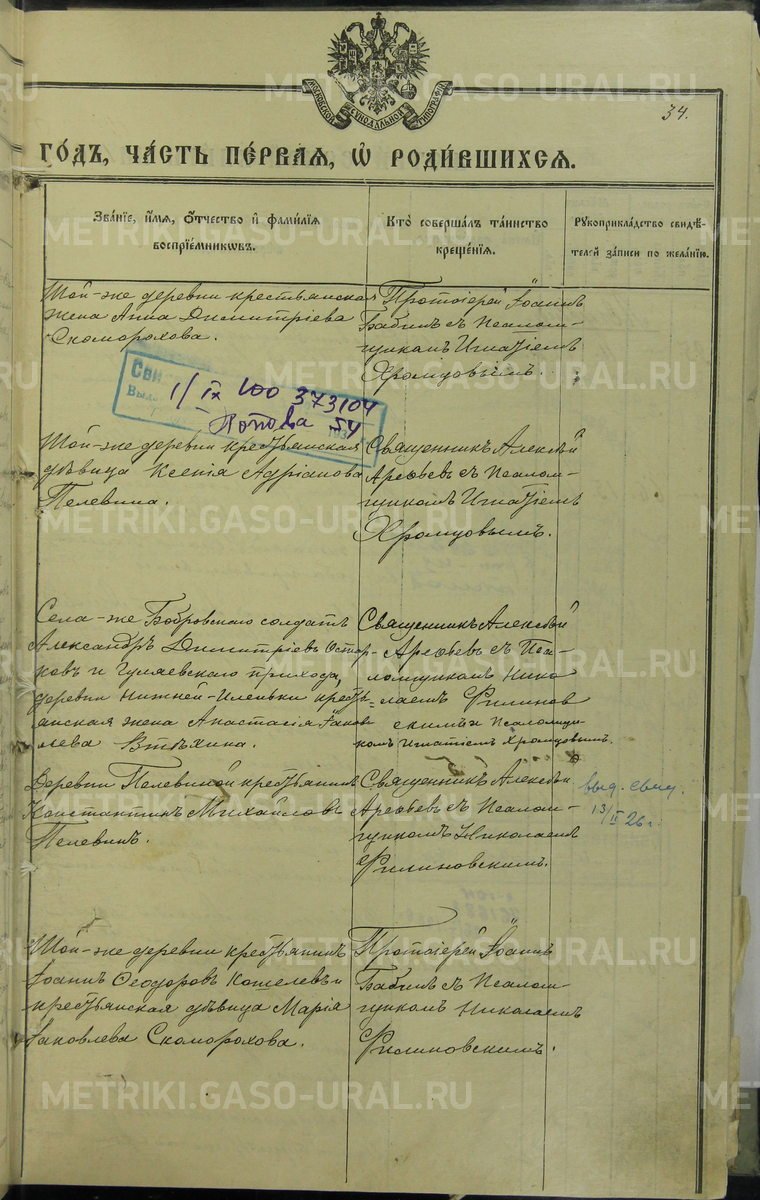 МОСКОВСКОЙ СѴНОДАЛЬНОЙ ТИПОГРАФІИ
34.
ГО́ДЪ, ЧА́СТЬ ПЕ́РВАЯ, Ѡ҆ РОДИ́ВШИХСЯ.
Зва́нїе, и҆́мя, ѻ҆́тчество и҆ фами́лїя
воспрїе́мникѡвъ.
Кто̀ соверша́лъ та́инство
креще́нїя.
Рукоприкла́дство свидѣ́-
телей за́писи по жела́нїю.
Той-же деревни крестьянская
жена Анна Димитріева
Скоморохова.
Протоіерей Іоаннъ
Бабинъ съ Псалом-
щикомъ Игнатіемъ
Хромцовымъ.
Сви
Выда
1/IX 100 373104
Попова 54
Той-же деревни крестьянская
дѣвица Ксенія Адріанова
Пелевина.
Священникъ Алексѣй
Арефьевъ съ Псалом-
щикомъ Игнатіемъ
Хромцовымъ.
Села-же Бобровскаго солдатъ
Александръ Димитріевъ Остар-
ковъ и Гуляевскаго прихода,
деревни Нижней-Иленьки кресть-
янская жена Анастасія Іаков-
лева Втѣхина.
Священникъ Алексѣй
Арефьевъ съ Пса-
ломщикомъ Нико
лаемъ Филинов
скимъ и Псаломщи
комъ Игнатіемъ Хромцовымъ.
Деревни Пелевиной крестьянинъ
Константинъ Михайловъ
Пелевинъ.
Священникъ Алексѣй
Арефьевъ съ Псалом-
щикомъ Николаемъ
Филиновскимъ.
выд. свид.
13/II 26 г.
Той-же деревни крестьянинъ
Іоаннъ Ѳеодоровъ Кошелевъ и
крестьянская дѣвица Марія
Іаковлева Скоморохова.
Протоіерей Іоаннъ
Бабинъ съ Псалом-
щикомъ Николаемъ
Филиновскимъ.
METRIKI.GASO-URAL.RU
METRIKI.GASO-URAL.RU
METRIKI.GASO-URAL.RU
METRIKI.GASO-URAL.RU
METRIKI.GASO-URAL.RU
METRIKI.GASO-URAL.RU
METRIKI.GASO-URAL.RU
METRIKI.GASO-URAL.RU